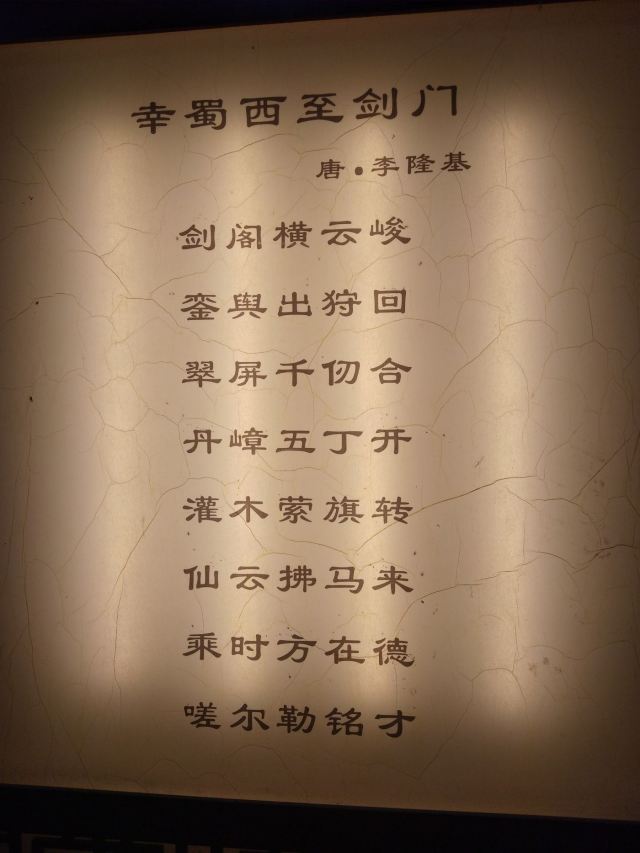 幸蜀西至剑门
唐·李隆基
剑阁横云峻
銮舆出狩回
翠屏千仞合
丹嶂五丁开
灌木萦旗转
仙云拂马来
乘时方在德
嗟尔勒铭才